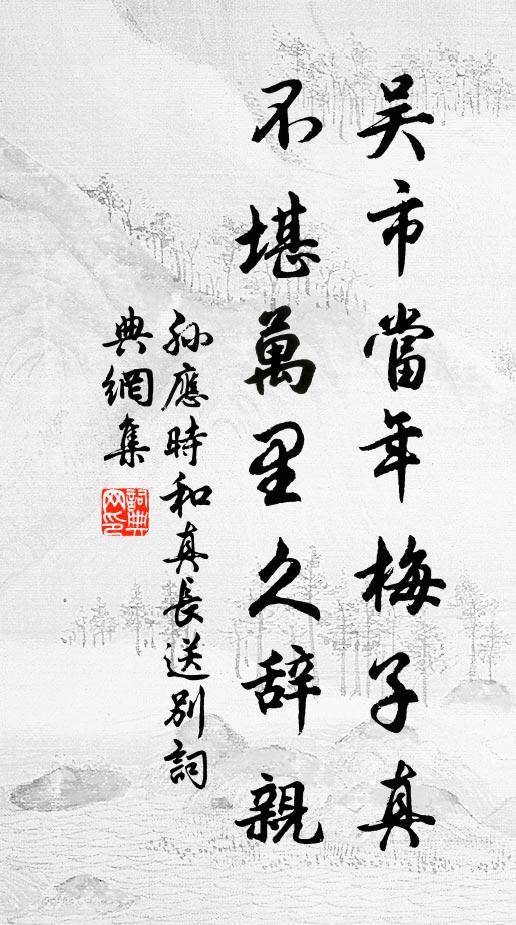 吴市當年梅子真
不堪萬里久辞親
孙應時和真長送别詞
典網集
詞典网印